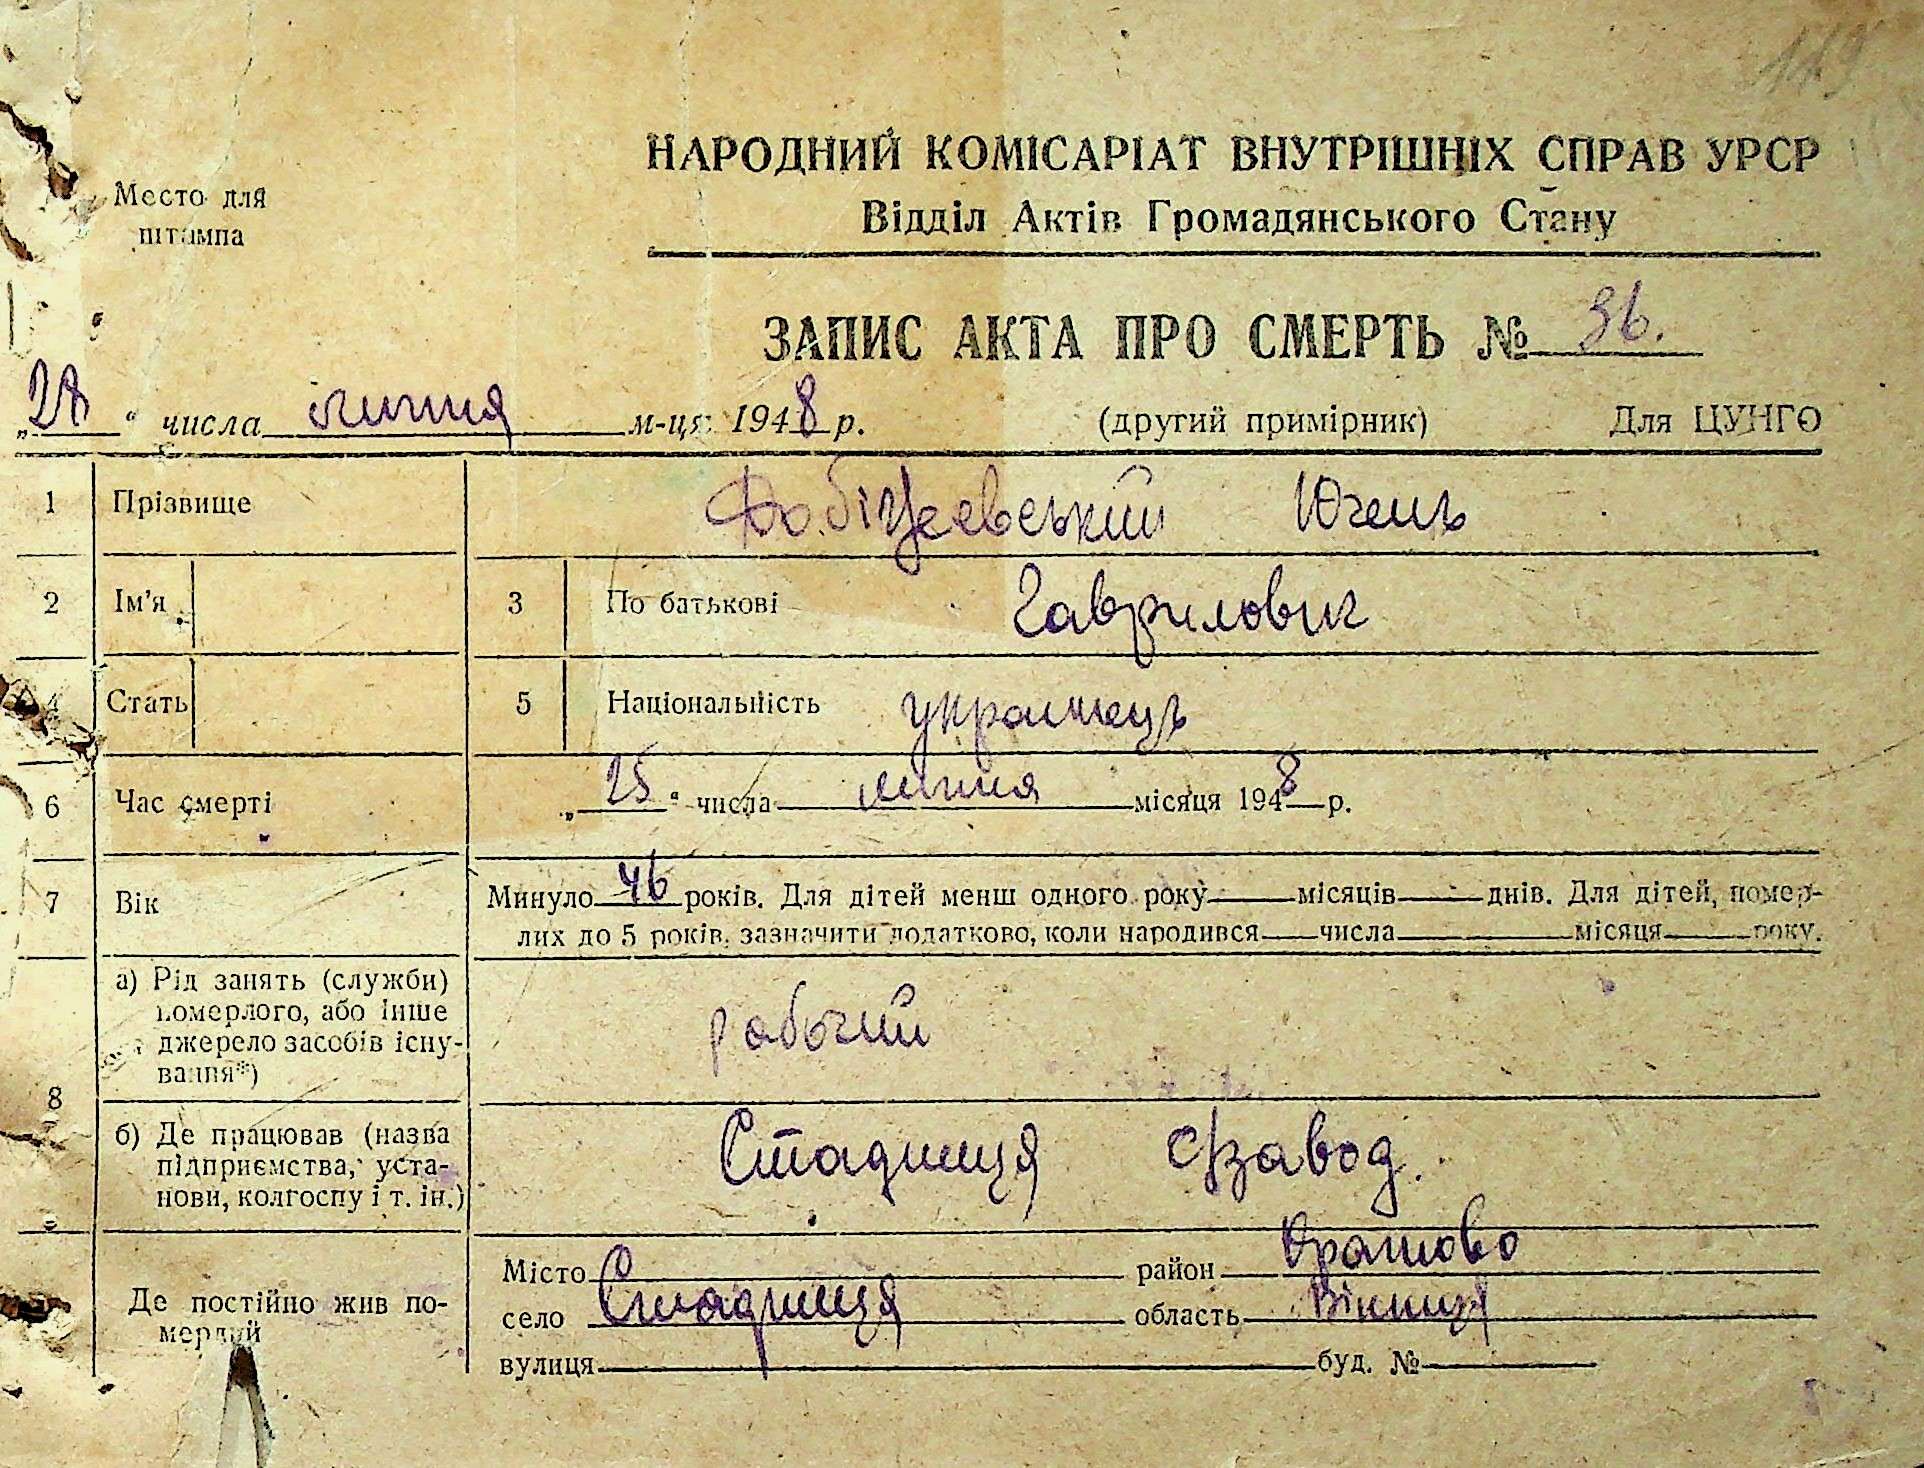 149
НАРОДНИЙ КОМІСАРІАТ ВНУТРІШНІХ СПРАВ УРСР
Место для штампа
Відділ Актів Громадянського Стану
ЗАПИС АКТА ПРО СМЕРТЬ № 96.
„28“ числа липня м-ця 1948 р. (другий примірник) Для ЦУНГО
1 Прізвище
2 Ім'я 3 По батькові Гаврилович
4 Стать 5 Національність українець
6 Час смерті „25“ числа липня місяця 1948 р.
7 Вік Минуло 46 років. Для дітей менш одного року місяців днів. Для дітей, помер-
лих до 5 років, зазначити додатково, коли народився числа місяця року.
8 а) Рід занять (служби)
померлого, або інше
джерело засобів існу-
вання*)
рабочий
б) Де працював (назва
підприємства, уста-
нови, колгоспу і т. ін.)
Стадниця завод.
Де постійно жив по-
мерлий
Місто район
село Стадниця область Вінниця
вулиця буд. №